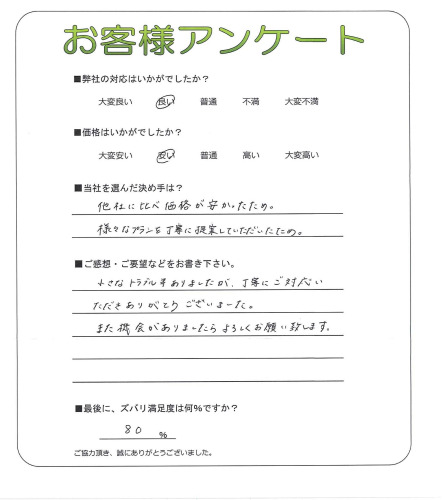 お客様アンケート
■弊社の対応はいかがでしたか？
大変良い 良い 普通 不満 大変不満
■価格はいかがでしたか？
大変安い 安い 普通 高い 大変高い
■当社を選んだ決め手は？
他社に比べ価格が安かったため。
様々なプランを丁寧に提案していただいたため。
■ご感想・ご要望などをお書き下さい。
小さなトラブル等ありましたが、丁寧にご対応い
ただきありがとうございました。
また機会がありましたらよろしくお願い致します。
■最後に、ズバリ満足度は何％ですか？
80 ％
ご協力頂き、誠にありがとうございました。